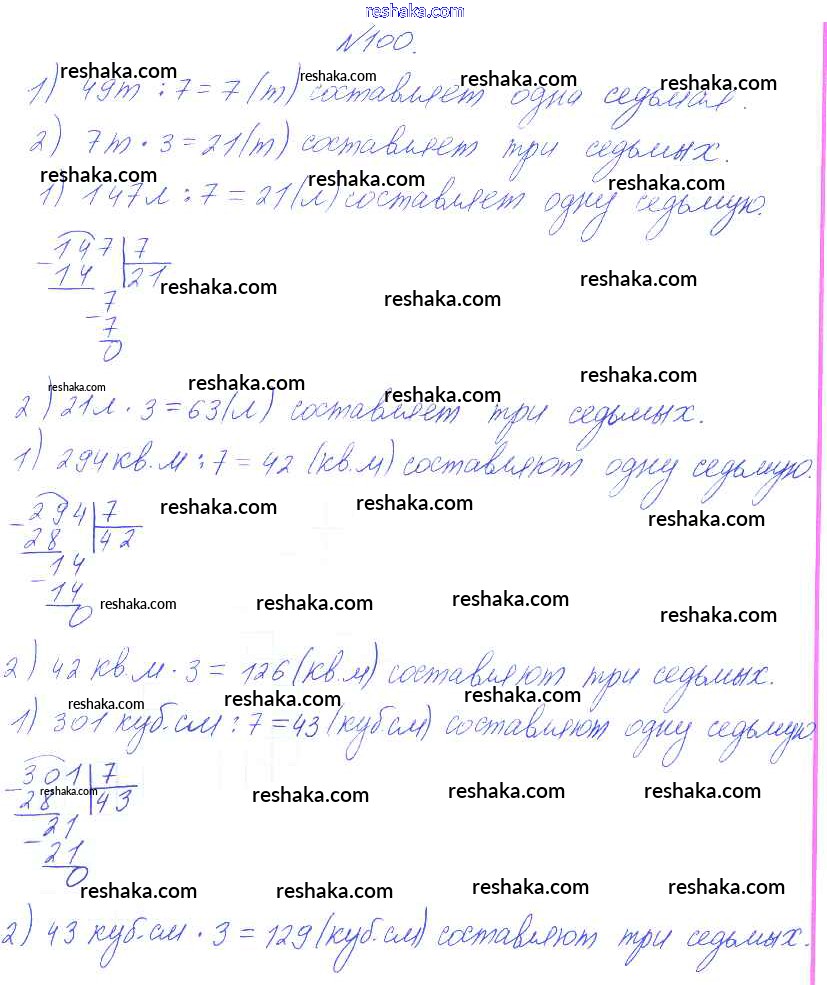 reshaka.com
№100.
reshaka.com reshaka.com reshaka.com reshaka.com
1) 49т : 7 = 7 (т) составляет одна седьмая.
2) 7т · 3 = 21 (т) составляет три седьмых.
reshaka.com reshaka.com reshaka.com
1) 147л : 7 = 21 (л) составляет одну седьмую.
− 147 7
14 21
reshaka.com reshaka.com reshaka.com
7
− 7
0
reshaka.com reshaka.com reshaka.com reshaka.com
2) 21л · 3 = 63 (л) составляет три седьмых.
1) 294 кв.м : 7 = 42 (кв.м) составляют одну седьмую.
reshaka.com reshaka.com reshaka.com
− 294 7
28 42
14
− 14
0
reshaka.com reshaka.com reshaka.com reshaka.com
2) 42 кв.м · 3 = 126 (кв.м) составляют три седьмых.
reshaka.com reshaka.com reshaka.com
1) 301 куб.см : 7 = 43 (куб.см) составляют одну седьмую.
− 301 7
reshaka.com reshaka.com reshaka.com reshaka.com
28 43
21
− 21
0
reshaka.com reshaka.com reshaka.com reshaka.com
2) 43 куб.см · 3 = 129 (куб.см) составляют три седьмых.